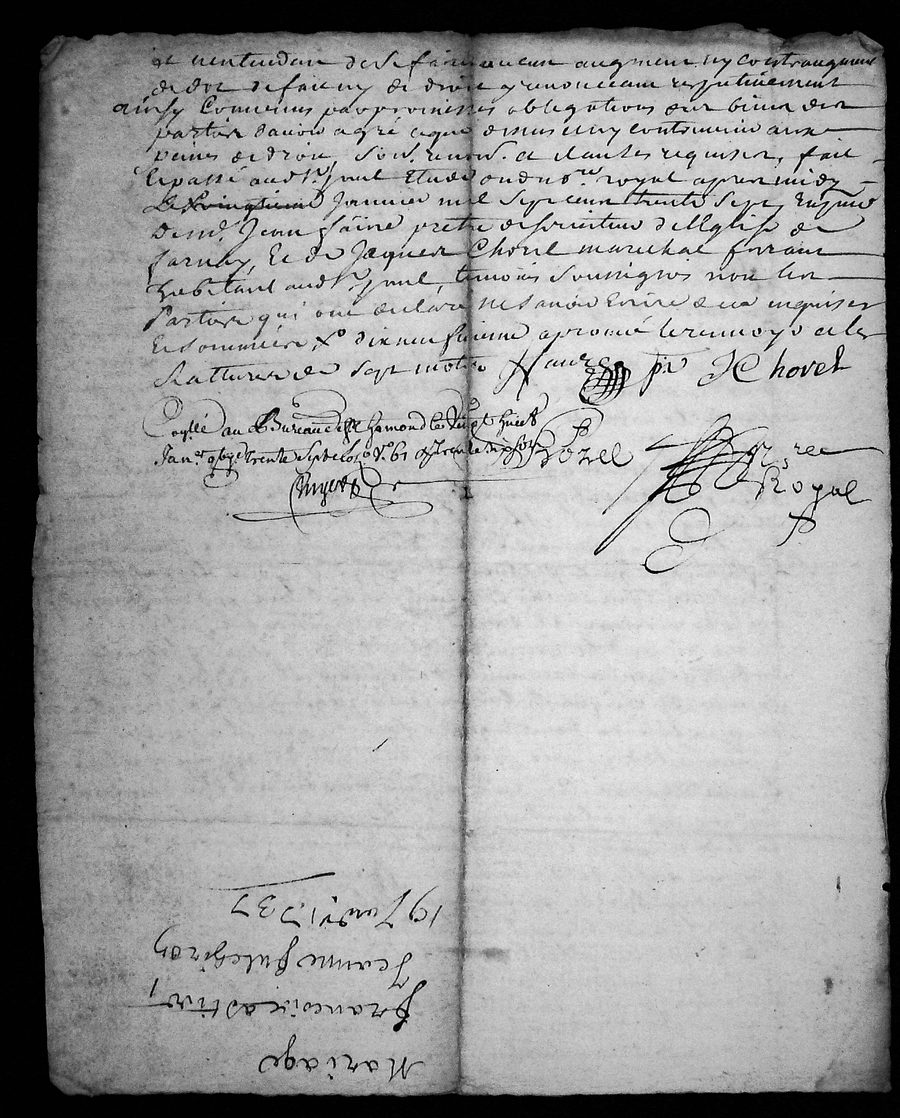 et n'entendan de se faire aucun augment ny contraugment
de dot de fait ny de droit y renonceant respectivement
ainsy Convenus par promisses obligations des biens des
parties davoir agré a que dessus ny contrevenir aux
peines de droit, Soub. renon. et clauses requises, fait
et passé aud. st paul Etude dud no.re royal apres midy
Le Vingtieme Janvier mil sept cent trente sept, En pnce
de m.r Jean faure pretre desserviteur de l'Eglise de
farnay, Et de Jacques Chovet marechal ferrant
habitant aud. st paul, temoins Soussignés non les
Parties qui ont declaré ne scavoir Ecrire de ce enquises
Et sommées Xo dix neufvieme aprouvé le renvoye et la
Ratture de sept mots Faure ptre J Chovet
Controllé au Bureau de st chamond le Vingt huit
Janr. 1737 trente sept
Rozel No.re
Royal
Mariage
francois
Jeanne fulchiron
19 Janvr 1737